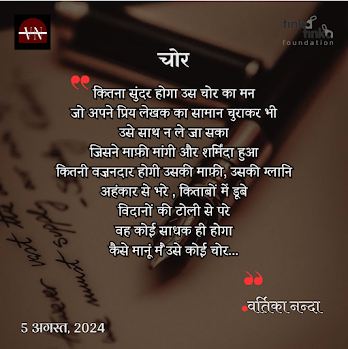 VN
tinka tinka
foundation
चोर
कितना सुंदर होगा उस चोर का मन
जो अपने प्रिय लेखक का सामान चुराकर भी
उसे साथ न ले जा सका
जिसने माफ़ी मांगी और शर्मिंदा हुआ
कितनी वज़नदार होगी उसकी माफ़ी, उसकी ग्लानि
अहंकार से भरे , किताबों में डूबे
विद्वानों की टोली से परे
वह कोई साधक ही होगा
कैसे मानूं मैं उसे कोई चोर...
वर्तिका नन्दा
5 अगस्त, 2024